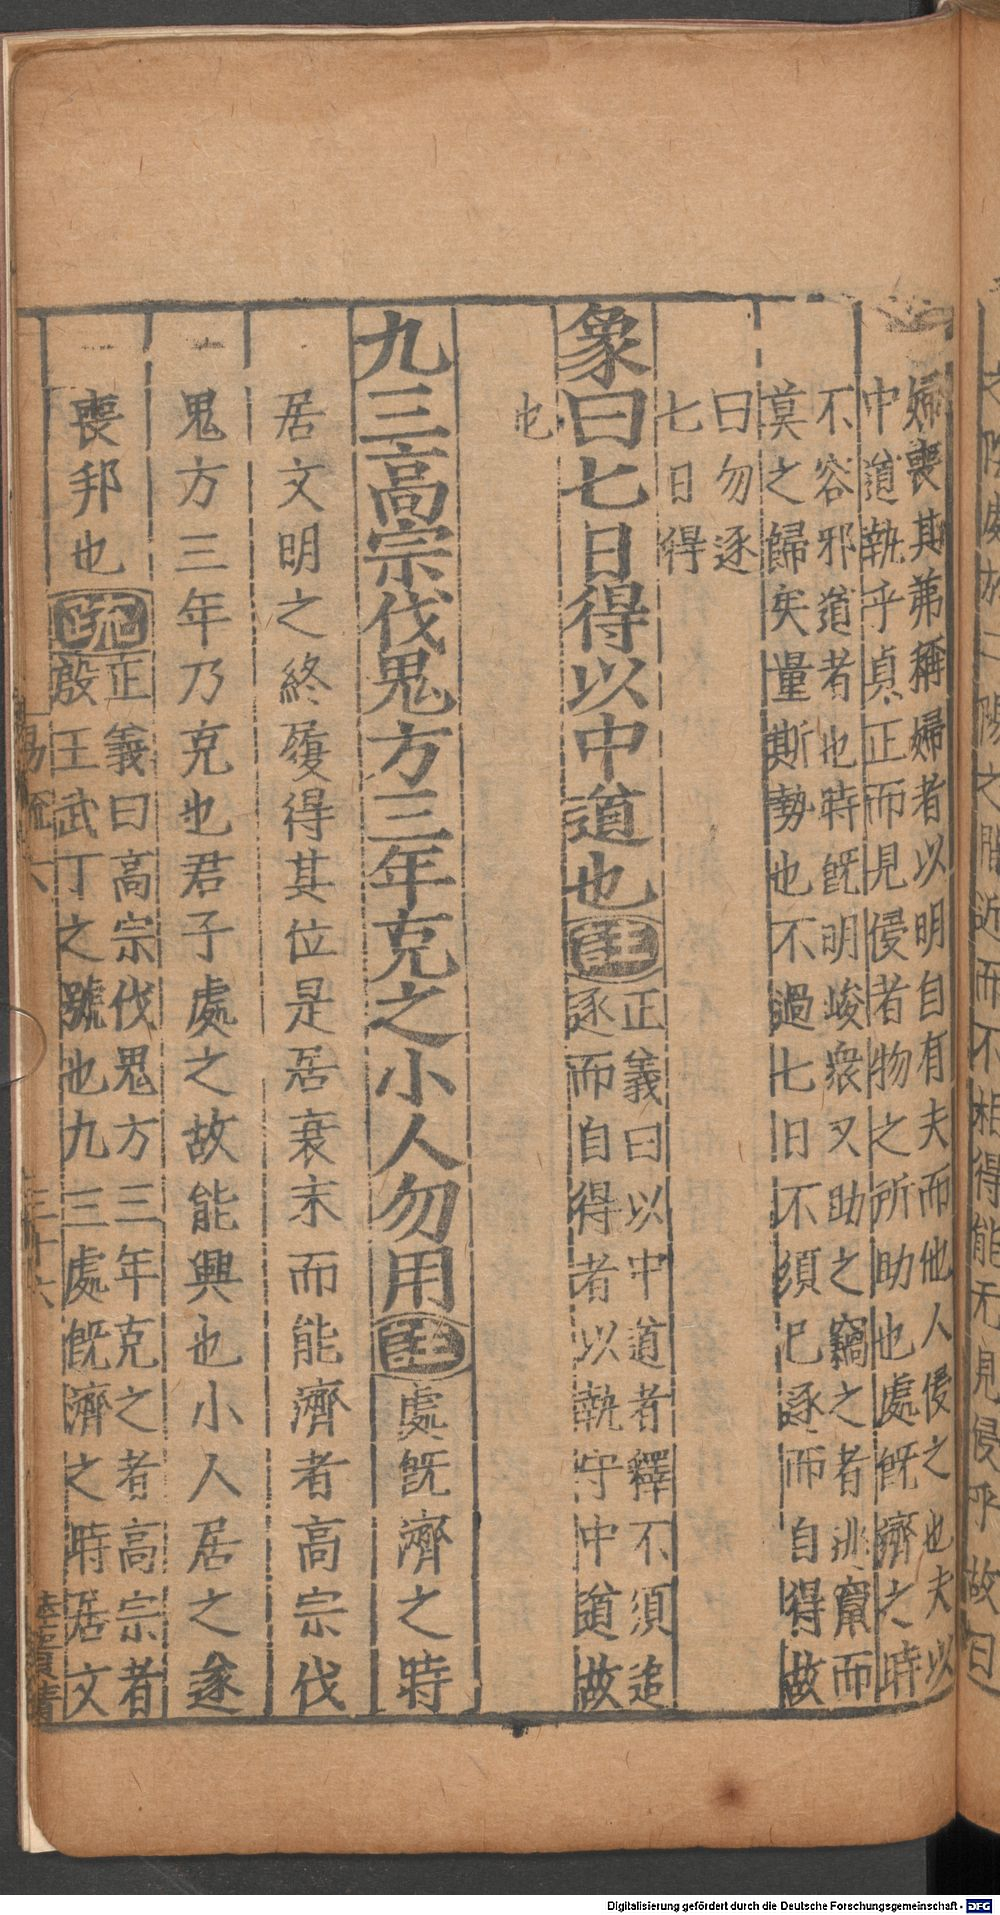 婦喪其茀稱婦者以明自有夫而他人侵之也夫以
中道執乎貞正而見侵者物之所助也處旣濟之時
不容邪道者也時旣明峻衆又助之竊之者逃竄而
莫之歸矣量斯勢也不過七日不須巳逐而自得故
曰勿逐
七日得
象曰七日得以中道也
疏
正義曰以中道者釋不須追
逐而自得者以執守中道故
也
九三高宗伐鬼方三年克之小人勿用
註
處旣濟之時
居文明之終履得其位是居衰末而能濟者高宗伐
鬼方三年乃克也君子處之故能興也小人居之遂
喪邦也
疏
正義曰高宗伐鬼方三年克之者高宗者
殷王武丁之號也九三處旣濟之時居文
易疏六
三十六
Digitalisierung gefördert durch die Deutsche Forschungsgemeinschaft - DFG